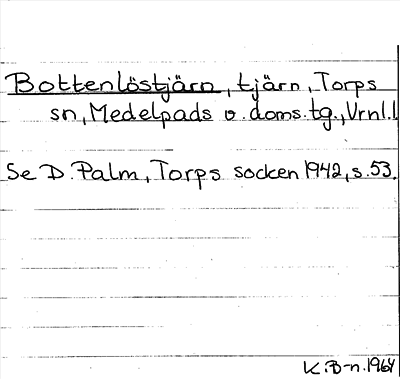 Bottenlöstjärn, tjärn, Torps
sn, Medelpads v. doms. tg., Vrnl.l
Se D. Palm, Torps socken 1942, s. 53.
K. B-n. 1964